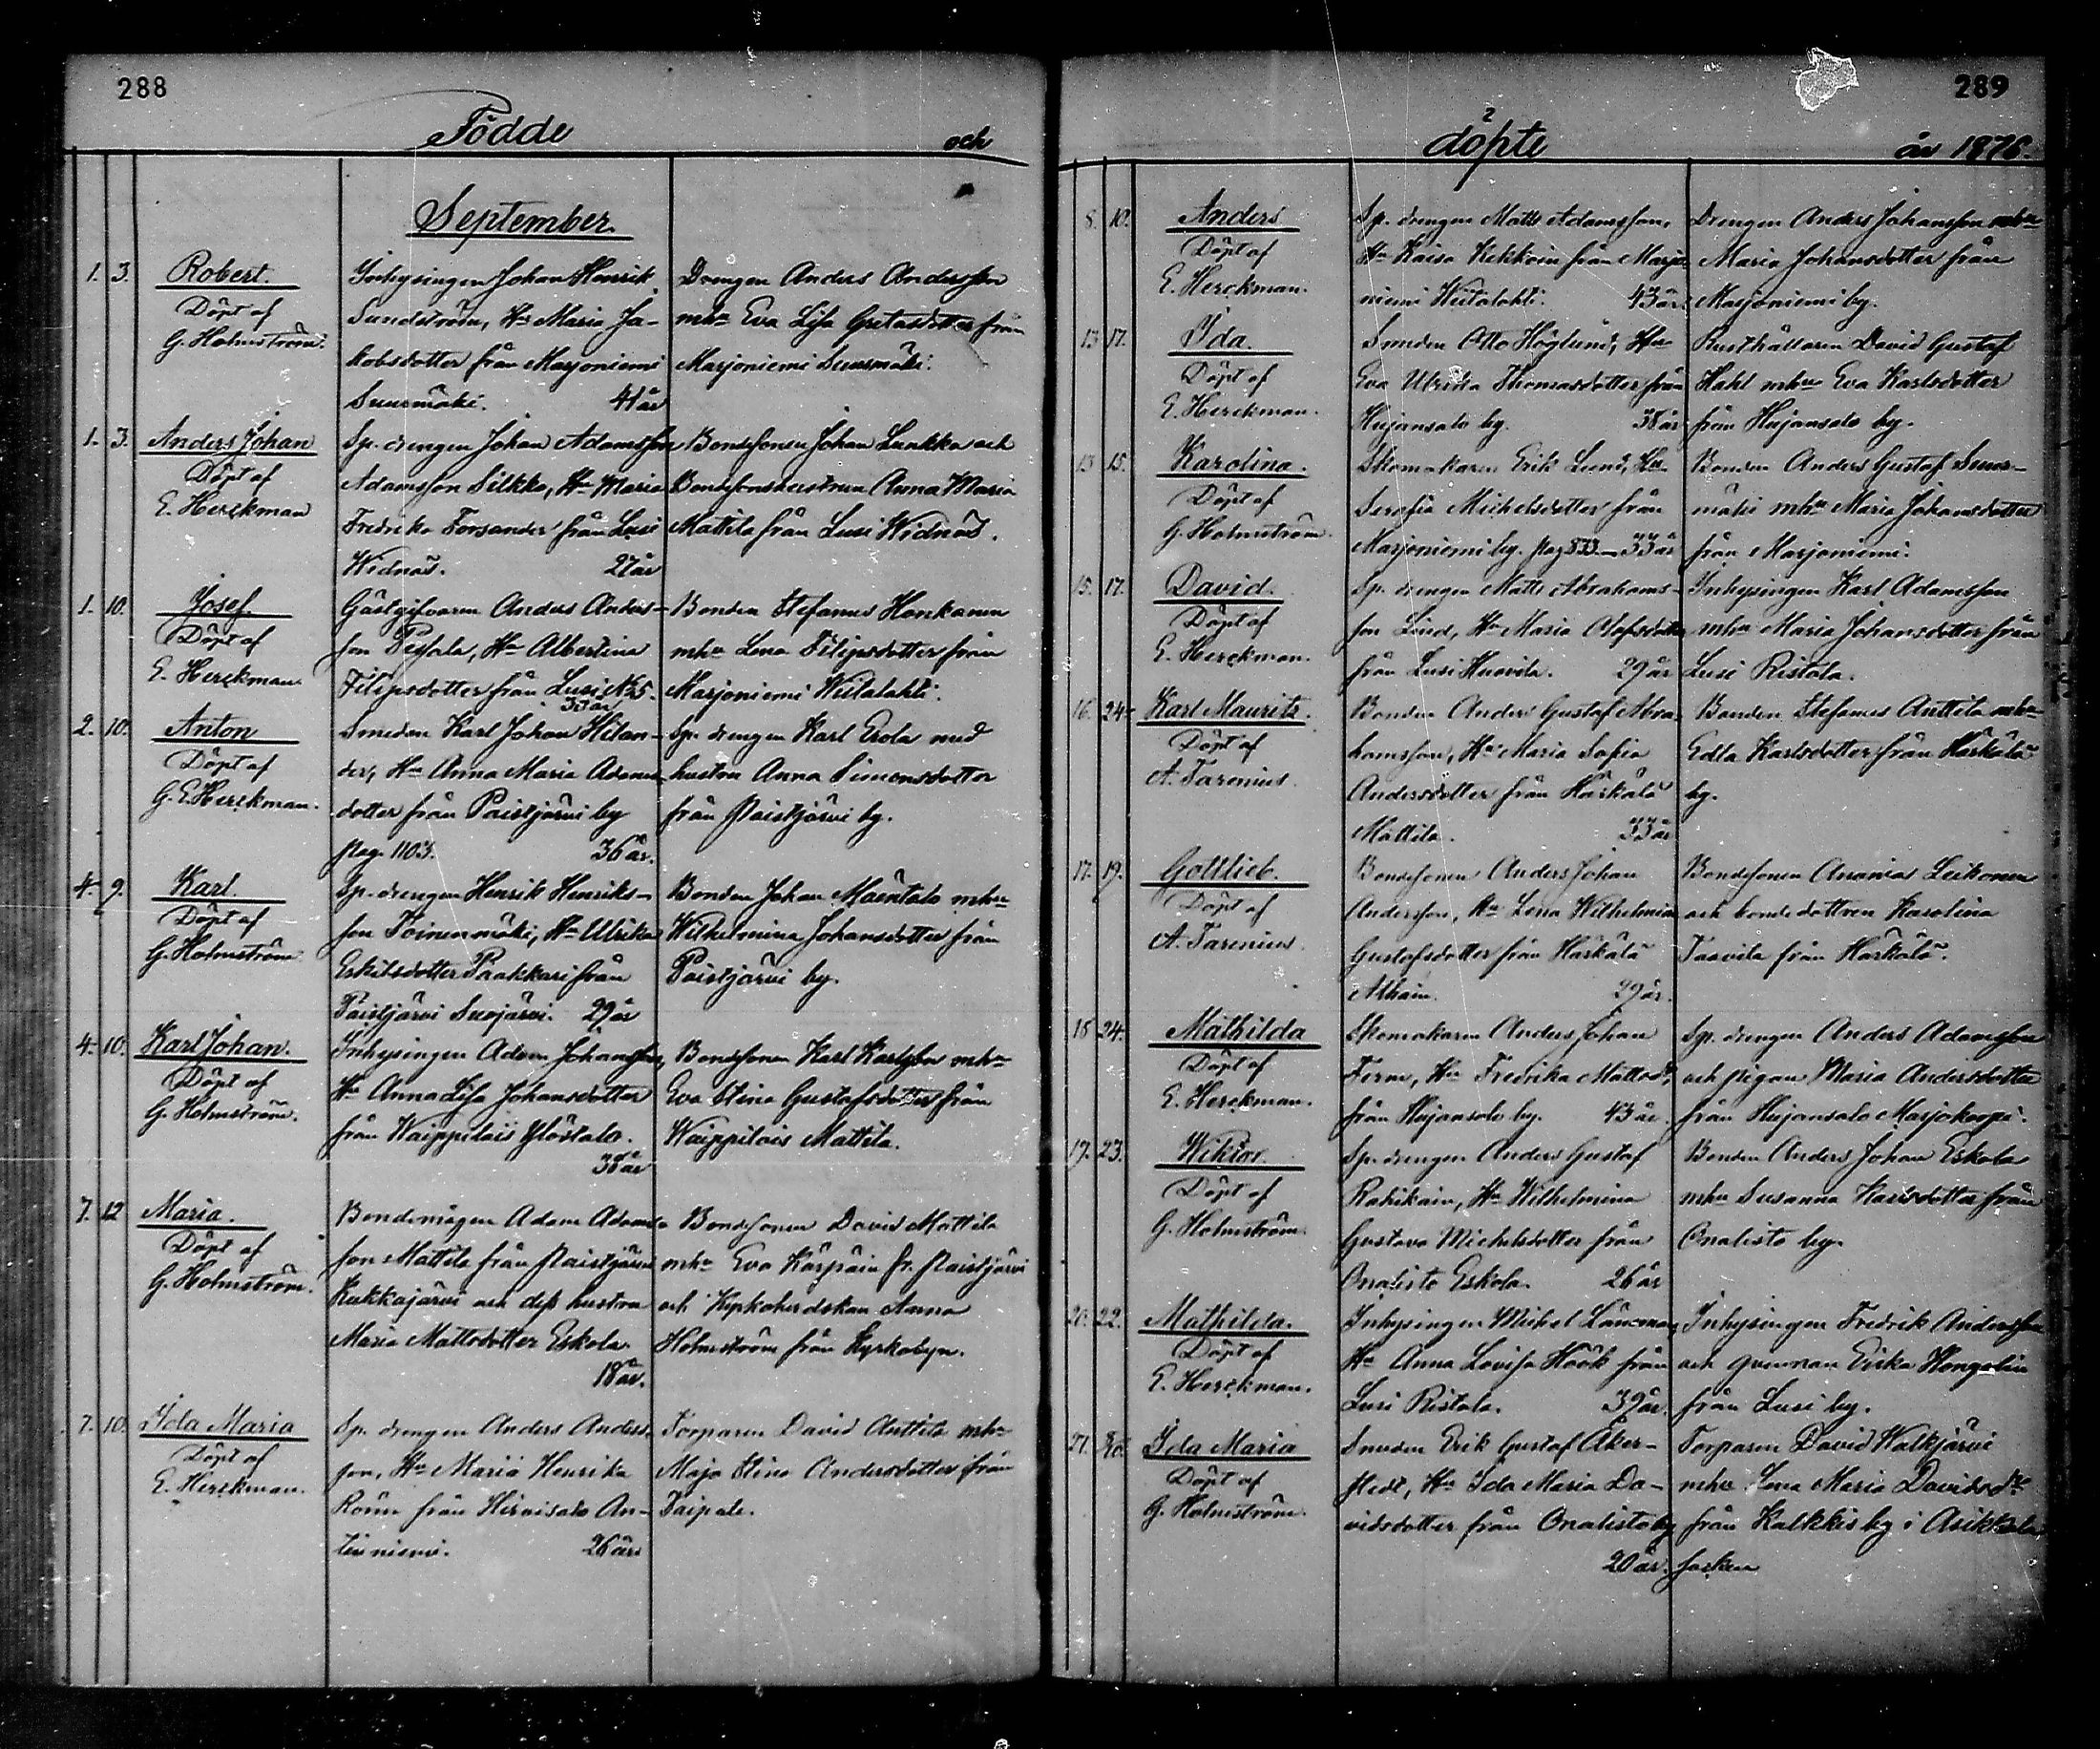 288
Födde och
September.
1. 3. Robert.
Döpt af
G. Holmström.
Inhysingen Johan Henrik
Sundström, Hu Maria Ja-
kobsdotter från Marjoniemi
Suurmäki. 41 år
Drengen Anders Andersson
mhu Eva Lisa Gretasdotter från
Marjoniemi Suurmäki.
1. 3. Anders Johan
Döpt af
E. Herckman
Sp. drengen Johan Adamsson
Adamsson Silkko, Hu Maria
Fredrika Forsander från Lusi
Widnäs. 27 år
Bondesonen Johan Laukka och
Bondesonhustrun Anna Maria
Mattila från Lusi Widnäs.
1. 10. Josef.
Döpt af
E. Herckman
Gästgifvaren Anders Anders-
son Pessala, Hu Albertina
Filipsdotter från Lusi No 5.
33 år
Bonden Stefanus Honkanen
mhu Lena Filipsdotter från
Marjoniemi Wiitalahti.
2. 10. Anton
Döpt af
G. E. Herckman.
Smeden Karl Johan Hilan-
der, Hu Anna Maria Adams-
dotter från Paistjärvi by
pag. 1103. 36 år.
Sp. drengen Karl Erola med
hustru Anna Simonsdotter
från Paistjärvi by.
4. 9. Karl.
Döpt af
G. Holmström
Sp. drengen Henrik Henriks-
son Toinenmäki, Hu Ulrika
Eskilsdotter Paakkari från
Paistjärvi Suojärvi. 29 år
Bonden Johan Mäentalo mhu
Wilhelmina Johansdotter från
Paistjärvi by.
4. 10. Karl Johan.
Döpt af
G. Holmström.
Inhysingen Adam Johansson,
Hu Anna Lisa Johansdotter
från Waippilais Ylöstalo.
38 år
Bondesonen Karl Karlsson mhu
Eva Stina Gustafsdotter från
Waippilais Mattila.
7. 12 Maria.
Döpt af
G. Holmström.
Bondemågen Adam Adams-
son Mattila från Paistjärvi
Kukkajärvi och dess hustru
Maria Mattsdotter Eskola.
18 år.
Bondesonen David Mattila
mhu Eva Käspäin fr. Paistjärvi
och Kyrkoherdskan Anna
Holmström från Kyrkobyn.
7. 10. Ida Maria
Döpt af
E. Herckman.
Sp. drengen Anders Anders-
son, Hu Maria Henrika
Rorin från Hirvisalo An-
tinniemi. 26 år
Torparen David Anttila mhu
Maja Stina Andersdotter från
Taipale.
289
döpte år 1876.
8. 10. Anders
Döpt af
E. Herckman.
Sp. drengen Matts Adamsson,
Hu Kaisa Kekkoin från Marjo-
niemi Wiitalahti. 43 år.
Drengen Anders Johansson mhu
Maria Johansdotter från
Marjoniemi by.
13 17. Ida.
Döpt af
E. Herckman.
Smeden Otto Höglund, Hu
Eva Ulrika Thomasdotter från
Hujansalo by. 38 år
Rusthållaren David Gustaf
Hahl mhu Eva Karlsdotter
från Hujansalo by.
13 15. Karolina.
Döpt af
G. Holmström.
Skomakaren Erik Lund, Hu
Serafia Michelsdotter från
Marjoniemi by. pag 533 - 33 år
Bonden Anders Gustaf Suur-
mäki mhu Maria Johansdotter
från Marjoniemi.
15. 17. David.
Döpt af
E. Herckman.
Sp. drengen Matts Abrahams-
son Lind, Hu Maria Olofsdotter
från Lusi Huovila. 29 år
Inhysingen Karl Adamsson
mhu Maria Johansdotter från
Lusi Ristola.
16. 24. Karl Mauritz.
Döpt af
A. Tarenius.
Bonden Anders Gustaf Abra-
hamsson, Hu Maria Sofia
Andersdotter från Härkälä
Mattila. 33 år
Bonden Stefanus Anttila mhu
Edla Karlsdotter från Härkälä
by.
17. 19. Gottlieb.
Döpt af
A. Tarenius.
Bondesonen Anders Johan
Andersson, Hu Lena Wilhelmina
Gustafsdotter från Härkälä
Alhain. 29 år.
Bondesonen Ananias Leikonen
och bondedottren Karolina
Taavila från Härkälä.
18 24. Mathilda
Döpt af
E. Herckman.
Skomakaren Anders Johan
Ferm, Hu Fredrika Mattsdr
från Hujansalo by. 43 år.
Sp. drengen Anders Adamsson
och pigan Maria Andersdotter
från Hujansalo Marjokorpi.
19. 23. Wiktor.
Döpt af
G. Holmström.
Sp. drengen Anders Gustaf
Rahikain, Hu Wilhelmina
Gustava Michelsdotter från
Onalisto Eskola. 26 år
Bonden Anders Johan Eskola
mhu Susanna Karlsdotter från
Onalisto by.
20. 22. Mathilda.
Döpt af
E. Herckman.
Inhysingen Michel Länsman,
Hu Anna Lovisa Höök från
Lusi Ristola. 39 år.
Inhysingen Fredrik Andersson
och qvinnan Erika Hongelin
från Lusi by.
21. Ida Maria
Döpt af
G. Holmström.
Smeden Erik Gustaf Åker-
stedt, Hu Ida Maria Da-
vidsdotter från Onalisto by
20 år.
Torparen David Walkjärvi
mhu Lena Maria Davidsdr
från Kalkkis by i Asikkala
socken